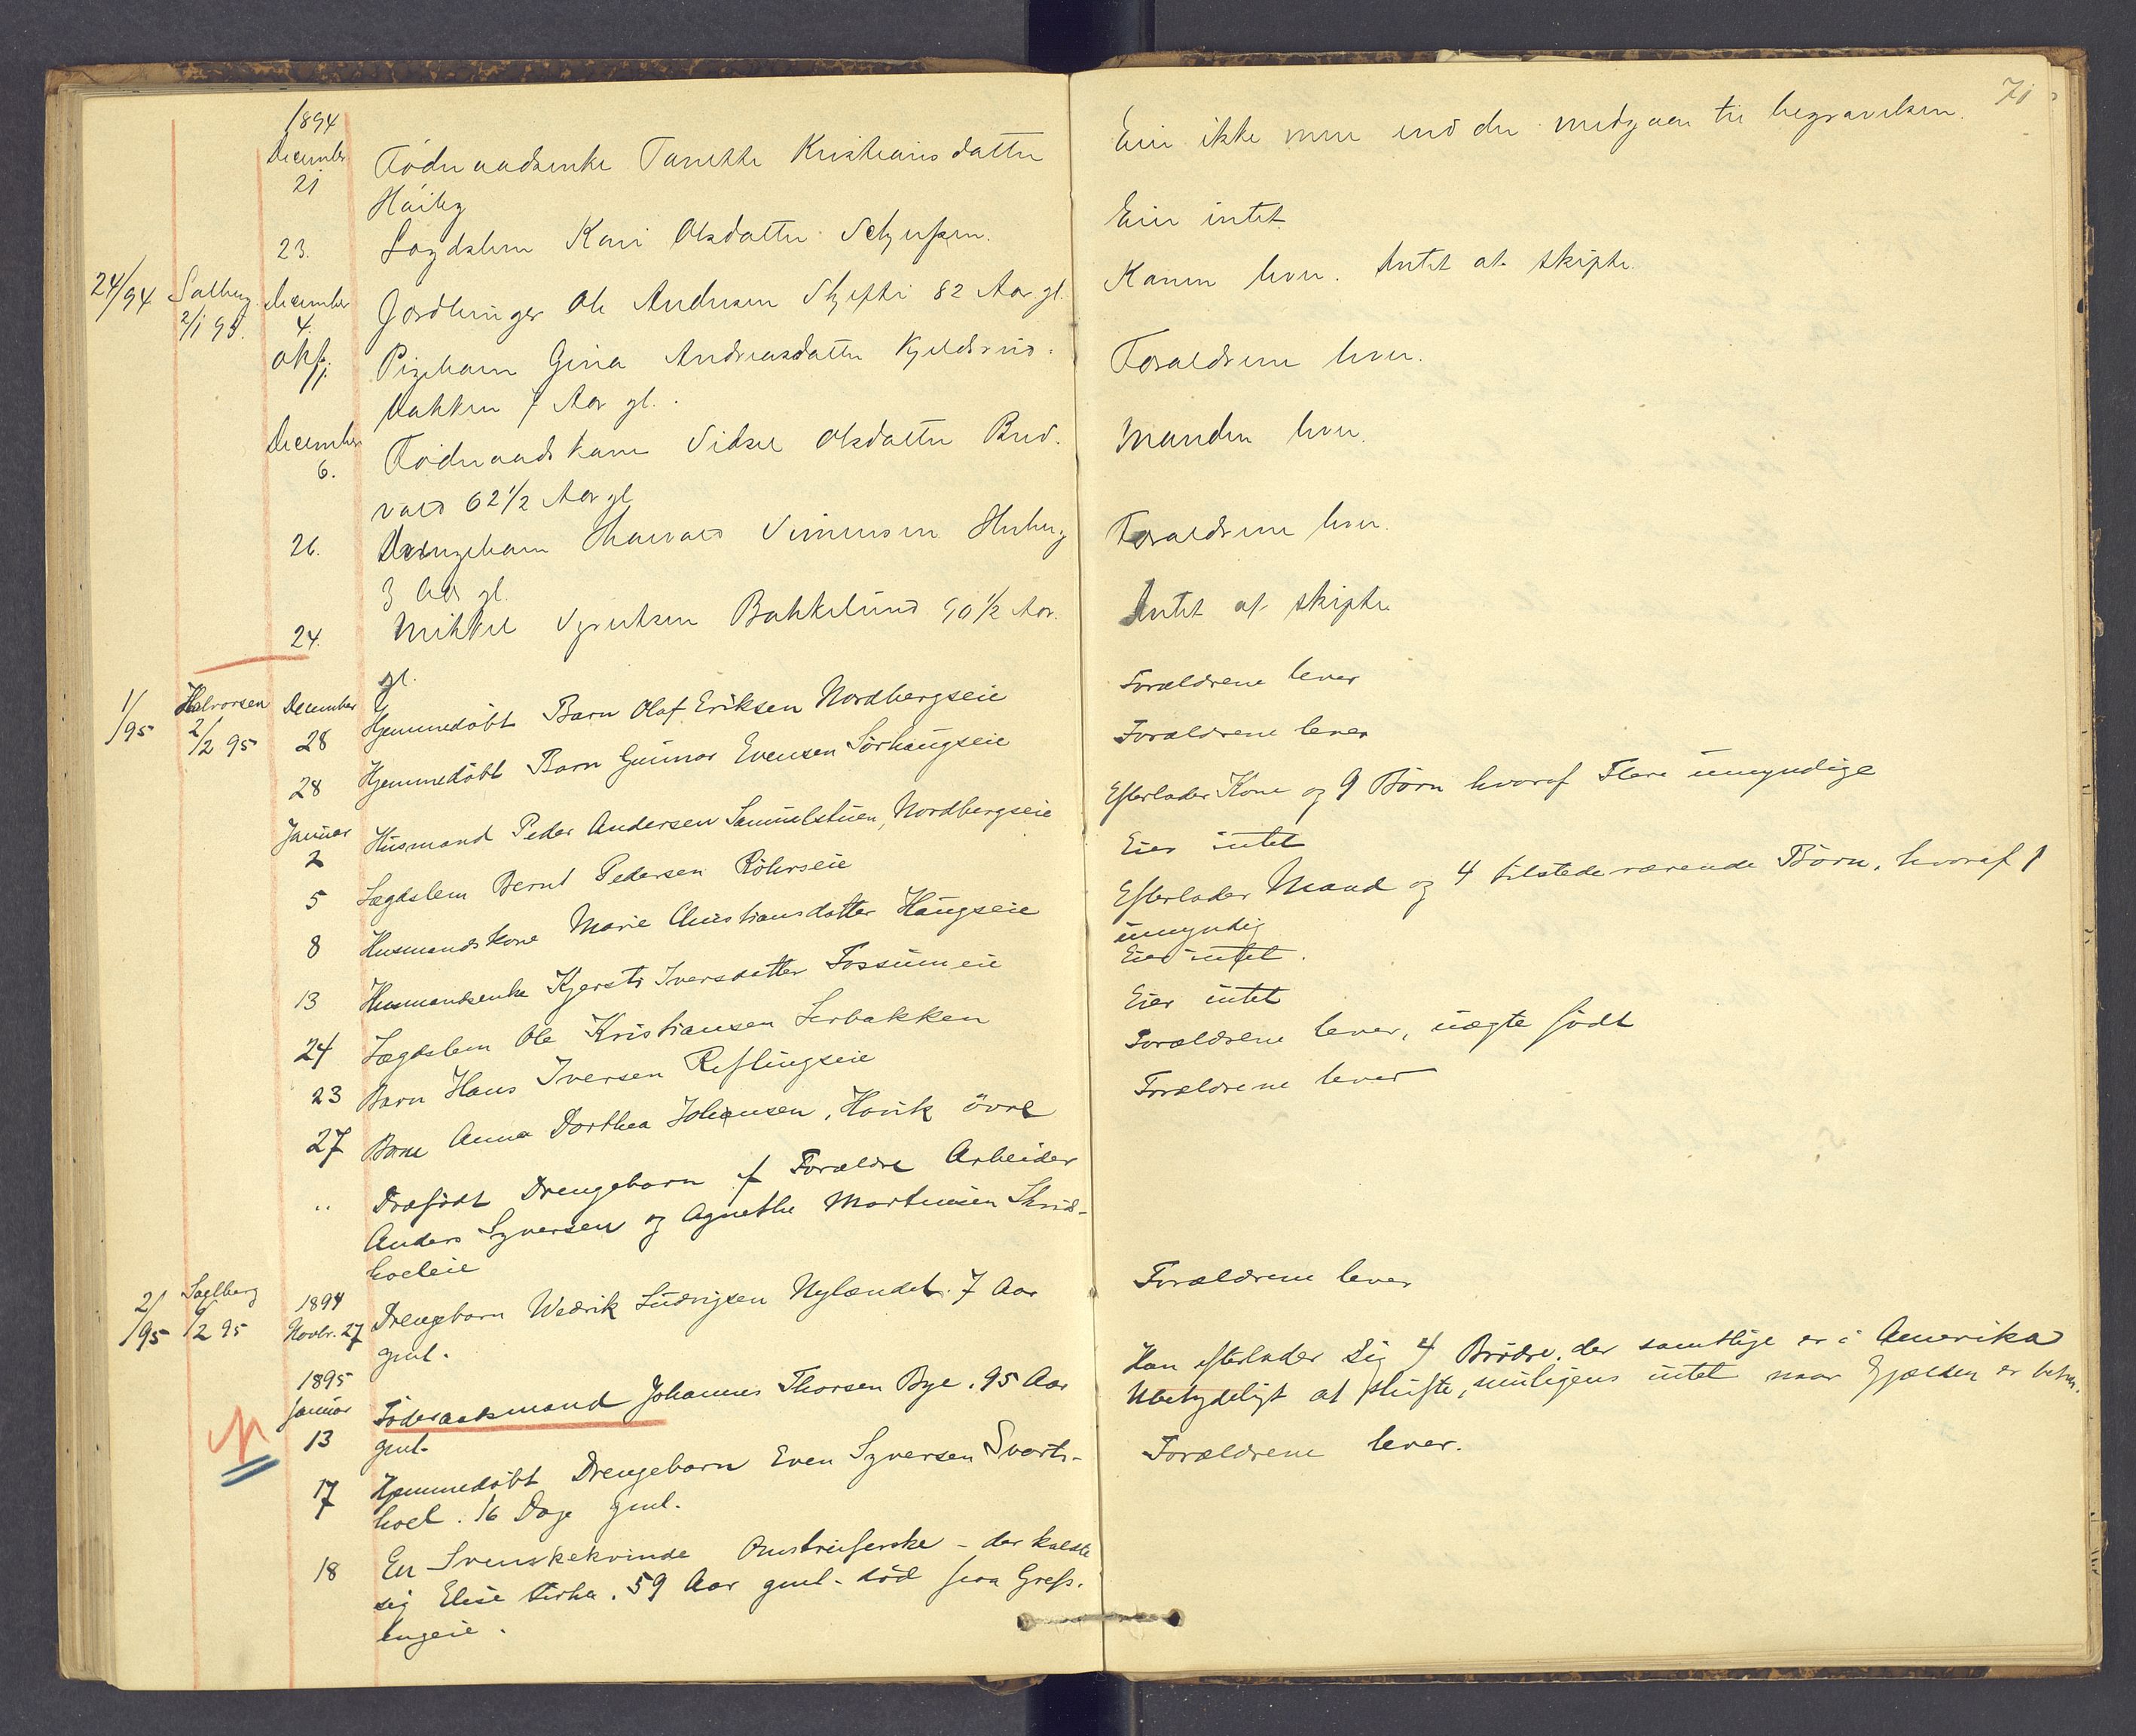 71
1894
December
21
Föderaadsenke Tanethe Kristiansdatter
Eier ikke mere end der medgaar til begravelsen.
23.
Lægdslem Kari Olsdatter
Eier intet
24/94
Solberg
2/1 95.
December
4.
Jordbruger Ole Andersen 82 Aar gl.
Konen lever. Intet at skipte
Pigebarn Gina Andreasdatter
Forældrene lever.
bakken 7 Aar gl.
December
6.
Föderaadskone Sidsel Olsdatter Brud-
Manden lever.
vold 62 1/2 Aar gl
26.
Drengebarn Simensen
Forældrene lever.
3 Aar gl.
24.
Mikkel Syversen Bakkelund 90 1/2 Aar.
Intet at skipte
gl.
1/95
Halvorsen
2/2 95
December
28
Hjemmedöbt Barn Olaf Eriksen Nordbergseie
Forældrene lever
28
Hjemmedöbt Barn Gunnar Evensen Sörhaugseie
Forældrene lever
Januar
2
Husmand Peder Andersen Samuelstuen, Nordbergseie
Efterlader Kone og 9 Börn hvoraf Flere umyndige
5
Lægdslem Bernt Pedersen Röhrseie
Eier intet
8
Husmandskone Marie Christiansdatter Haugseie
Efterlader Mand og 4 tilstedeværende Börn, hvoraf 1
umyndig
13
Husmandsenke Kjersti Iversdatter Fossumeie
Eier intet.
24
Lægdslem Ole Kristiansen Lerbakken
Eier intet
23
Barn Hans Iversen Reflingseie
Forældrene lever, uægte födt
27
Barn Anna Dorthea Johansen, Hovik övre
Forældrene lever
"
Dödfödt Drengebarn af Forældre Arbeider
Anders Syversen og Agnethe Martinsen
hoeleie
2/95
Solberg
9/2 95
1894
Novbr. 27
Drengebarn Wedrik Ludvigsen Nylændet. 7 Aar
Forældrene lever
gml.
1895
Januar
13
Föderaadsmand Johannes Thorsen Bye. 95 Aar
Han efterlader sig 4 Brödre, der samtlige er i Amerika
gml.
Ubetydeligt at skifte, muligens intet naar Gjælden er
17
Hjemmedöbt Drengebarn Even Syversen Svarts-
Forældrene lever.
hoel. 16 Dage gml.
18
En Svenskekvinde Omstreiferske - der kaldte
sig Elise 59 Aar gml. död paa Græs-
engeie.